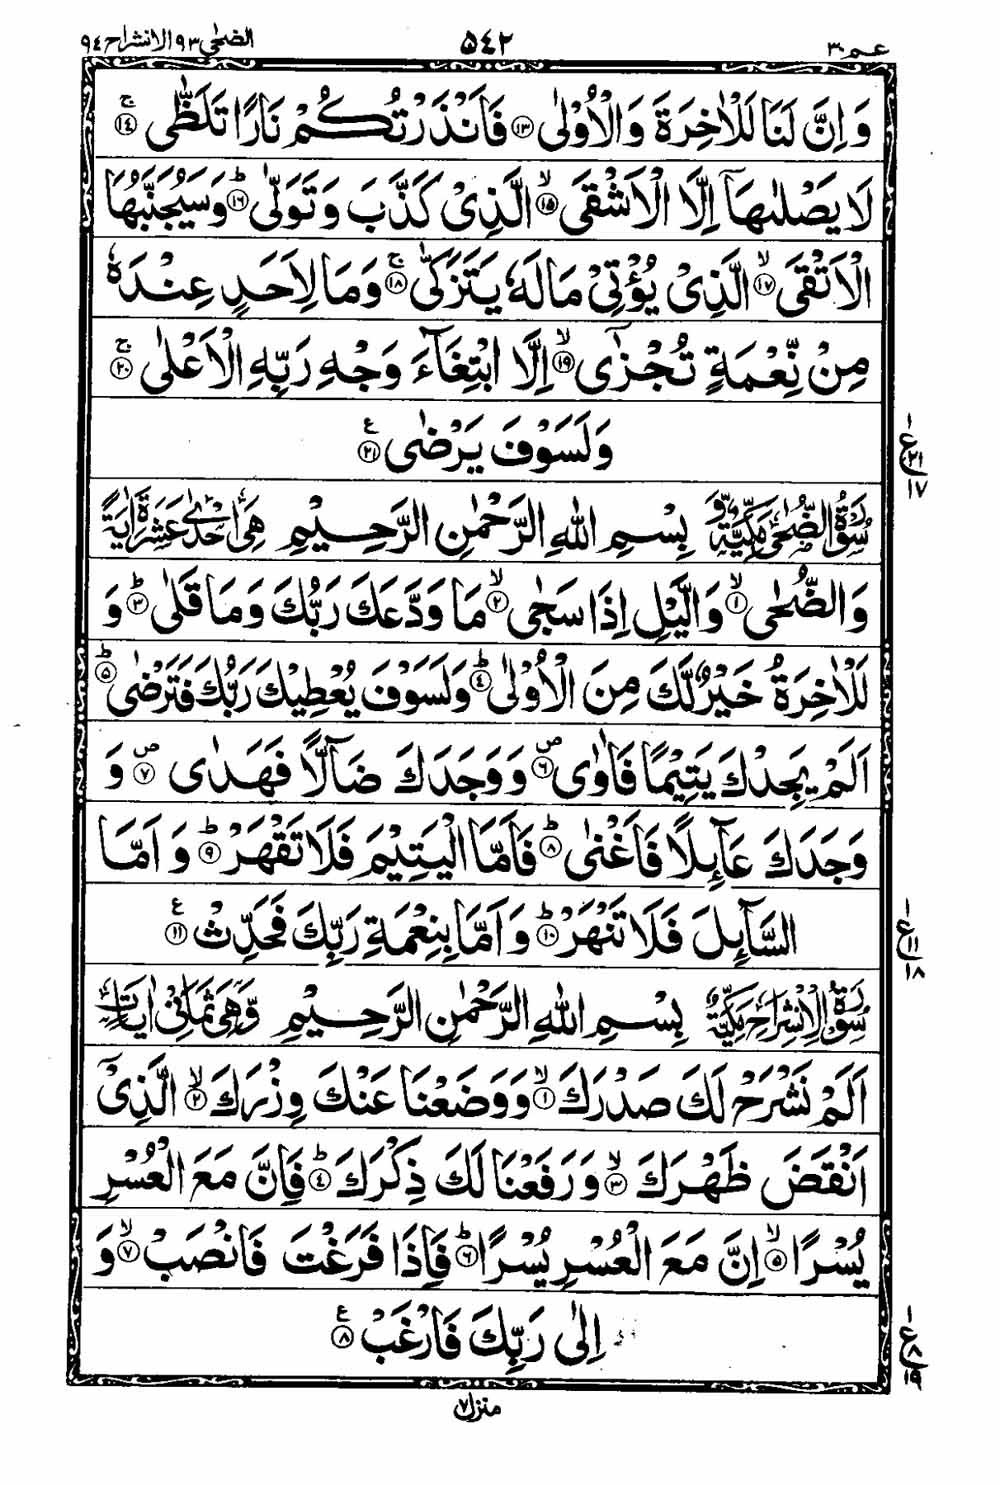 عـم ٣٠ ٥٤٢ الضحٰى ٩٣ الانشراح ٩٤
وَاِنَّ لَنَا لَلْاٰخِرَةَ وَالْاُوْلٰى ۝١٣ فَاَنْذَرْتُكُمْ نَارًا تَلَظّٰى ۚ۝١٤
لَا يَصْلٰىهَاۤ اِلَّا الْاَشْقَى ۙ۝١٥ الَّذِىْ كَذَّبَ وَتَوَلّٰى ؕ۝١٦ وَسَيُجَنَّبُهَا
الْاَتْقَى ۙ۝١٧ الَّذِىْ يُؤْتِىْ مَالَهٗ يَتَزَكّٰى ۚ۝١٨ وَمَا لِاَحَدٍ عِنْدَهٗ
مِنْ نِّعْمَةٍ تُجْزٰۤى ۙ۝١٩ اِلَّا ابْتِغَآءَ وَجْهِ رَبِّهِ الْاَعْلٰى ۚ۝٢٠
وَلَسَوْفَ يَرْضٰى ۝٢١ ع
ع ٢١ ١٧
سُوْرَةُ الضُّحٰى مَكِّيَّةٌ وَّ بِسْمِ اللهِ الرَّحْمٰنِ الرَّحِيْمِ هِىَ اِحْدٰى عَشْرَةَ اٰيَةً
وَالضُّحٰى ۙ۝١ وَالَّيْلِ اِذَا سَجٰى ۙ۝٢ مَا وَدَّعَكَ رَبُّكَ وَمَا قَلٰى ؕ۝٣ وَ
لَلْاٰخِرَةُ خَيْرٌ لَّكَ مِنَ الْاُوْلٰى ؕ۝٤ وَلَسَوْفَ يُعْطِيْكَ رَبُّكَ فَتَرْضٰى ؕ۝٥
اَلَمْ يَجِدْكَ يَتِيْمًا فَاٰوٰى ۪۝٦ وَوَجَدَكَ ضَآلًّا فَهَدٰى ۪۝٧ وَ
وَجَدَكَ عَآئِلًا فَاَغْنٰى ؕ۝٨ فَاَمَّا الْيَتِيْمَ فَلَا تَقْهَرْ ؕ۝٩ وَاَمَّا
السَّآئِلَ فَلَا تَنْهَرْ ؕ۝١٠ وَاَمَّا بِنِعْمَةِ رَبِّكَ فَحَدِّثْ ۝١١ ع
ع ١١ ١٨
سُوْرَةُ الْاِنْشِرَاحِ مَكِّيَّةٌ بِسْمِ اللهِ الرَّحْمٰنِ الرَّحِيْمِ وَّهِىَ ثَمَانِىْ اٰيَاتٍ
اَلَمْ نَشْرَحْ لَكَ صَدْرَكَ ۙ۝١ وَوَضَعْنَا عَنْكَ وِزْرَكَ ۙ۝٢ الَّذِىْۤ
اَنْقَضَ ظَهْرَكَ ۙ۝٣ وَرَفَعْنَا لَكَ ذِكْرَكَ ؕ۝٤ فَاِنَّ مَعَ الْعُسْرِ
يُسْرًا ۙ۝٥ اِنَّ مَعَ الْعُسْرِ يُسْرًا ؕ۝٦ فَاِذَا فَرَغْتَ فَانْصَبْ ۙ۝٧ وَ
اِلٰى رَبِّكَ فَارْغَبْ ۝٨ ع
ع ٨ ١٩
منزل ٧